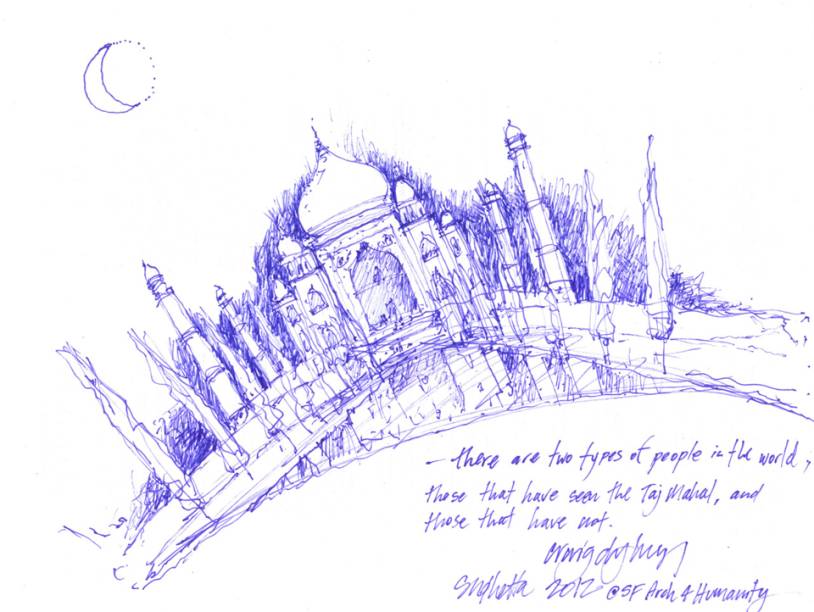 - there are two types of people in the world,
those that have seen the Taj Mahal, and
those that have not.
2012 @ SF Arch 4 Humanity